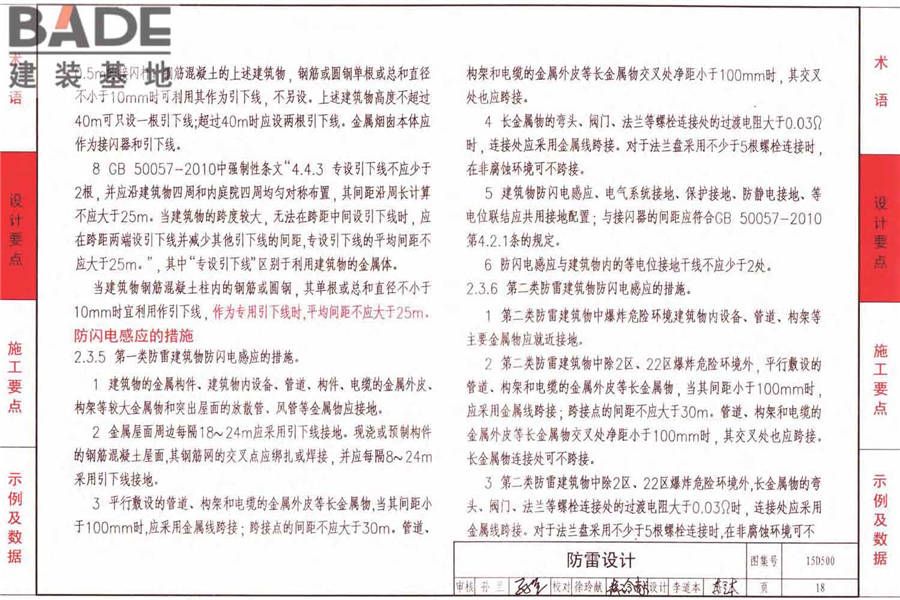 BADE
建装基地
术
语
设计要点
施工要点
示例及数据
不小于10mm时可利用其作为引下线，不另设。上述建筑物高度不超过
40m可只设一根引下线;超过40m时应设两根引下线。金属烟囱本体应
作为接闪器和引下线。
8 GB 50057-2010中强制性条文“4.4.3 专设引下线不应少于
2根，并应沿建筑物四周和内庭院四周均匀对称布置，其间距沿周长计算
不应大于25m。当建筑物的跨度较大，无法在跨距中间设引下线时，应
在跨距两端设引下线并减少其他引下线的间距,专设引下线的平均间距不
应大于25m。”，其中“专设引下线”区别于利用建筑物的金属体。
当建筑物钢筋混凝土柱内的钢筋或圆钢，其单根或总和直径不小于
10mm时宜利用作引下线，作为专用引下线时,平均间距不应大于25m。
防闪电感应的措施
2.3.5 第一类防雷建筑物防闪电感应的措施。
1 建筑物的金属构件、建筑物内设备、管道、构件、电缆的金属外皮、
构架等较大金属物和突出屋面的放散管、风管等金属物应接地。
2 金属屋面周边每隔18～24m应采用引下线接地。现浇或预制构件
的钢筋混凝土屋面,其钢筋网的交叉点应绑扎或焊接，并应每隔8～24m
采用引下线接地。
3 平行敷设的管道、构架和电缆的金属外皮等长金属物,当其间距小
于100mm时,应采用金属线跨接；跨接点的间距不应大于30m。管道、
构架和电缆的金属外皮等长金属物交叉处净距小于100mm时，其交叉
处也应跨接。
4 长金属物的弯头、阀门、法兰等螺栓连接处的过渡电阻大于0.03Ω
时，连接处应采用金属线跨接。对于法兰盘采用不少于5根螺栓连接时，
在非腐蚀环境可不跨接。
5 建筑物防闪电感应、电气系统接地、保护接地、防静电接地、等
电位联结应共用接地配置；与接闪器的间距应符合GB 50057-2010
第4.2.1条的规定。
6 防闪电感应与建筑物内的等电位接地干线不应少于2处。
2.3.6 第二类防雷建筑物防闪电感应的措施。
1 第二类防雷建筑物中爆炸危险环境建筑物内设备、管道、构架等
主要金属物应就近接地。
2 第二类防雷建筑物中除2区、22区爆炸危险环境外，平行敷设的
管道、构架和电缆的金属外皮等长金属物，当其间距小于100mm时，
应采用金属线跨接；跨接点的间距不应大于30m。管道、构架和电缆的
金属外皮等长金属物交叉处净距小于100mm时，其交叉处也应跨接。
长金属物连接处可不跨接。
3 第二类防雷建筑物中除2区、22区爆炸危险环境外,长金属物的弯
头、阀门、法兰等螺栓连接处的过渡电阻大于0.03Ω时，连接处应采用
金属线跨接。对于法兰盘采用不少于5根螺栓连接时,在非腐蚀环境可不
术
语
设计要点
施工要点
示例及数据
防雷设计
图集号 15D500
审核 孙兰 校对 徐玲献 设计 李道本 页 18